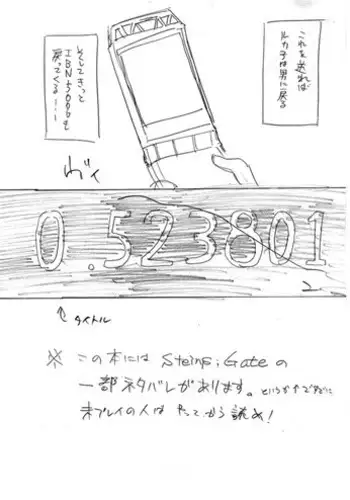 これを送れば
ルカ子は男に戻る
そしてきっと
IBN5100も
戻ってくる…
ヴィ
0.523801
タイトル
※ この本には Steins;Gateの
一部ネタバレがあります。というかすでに
未プレイの人は やってから読め!